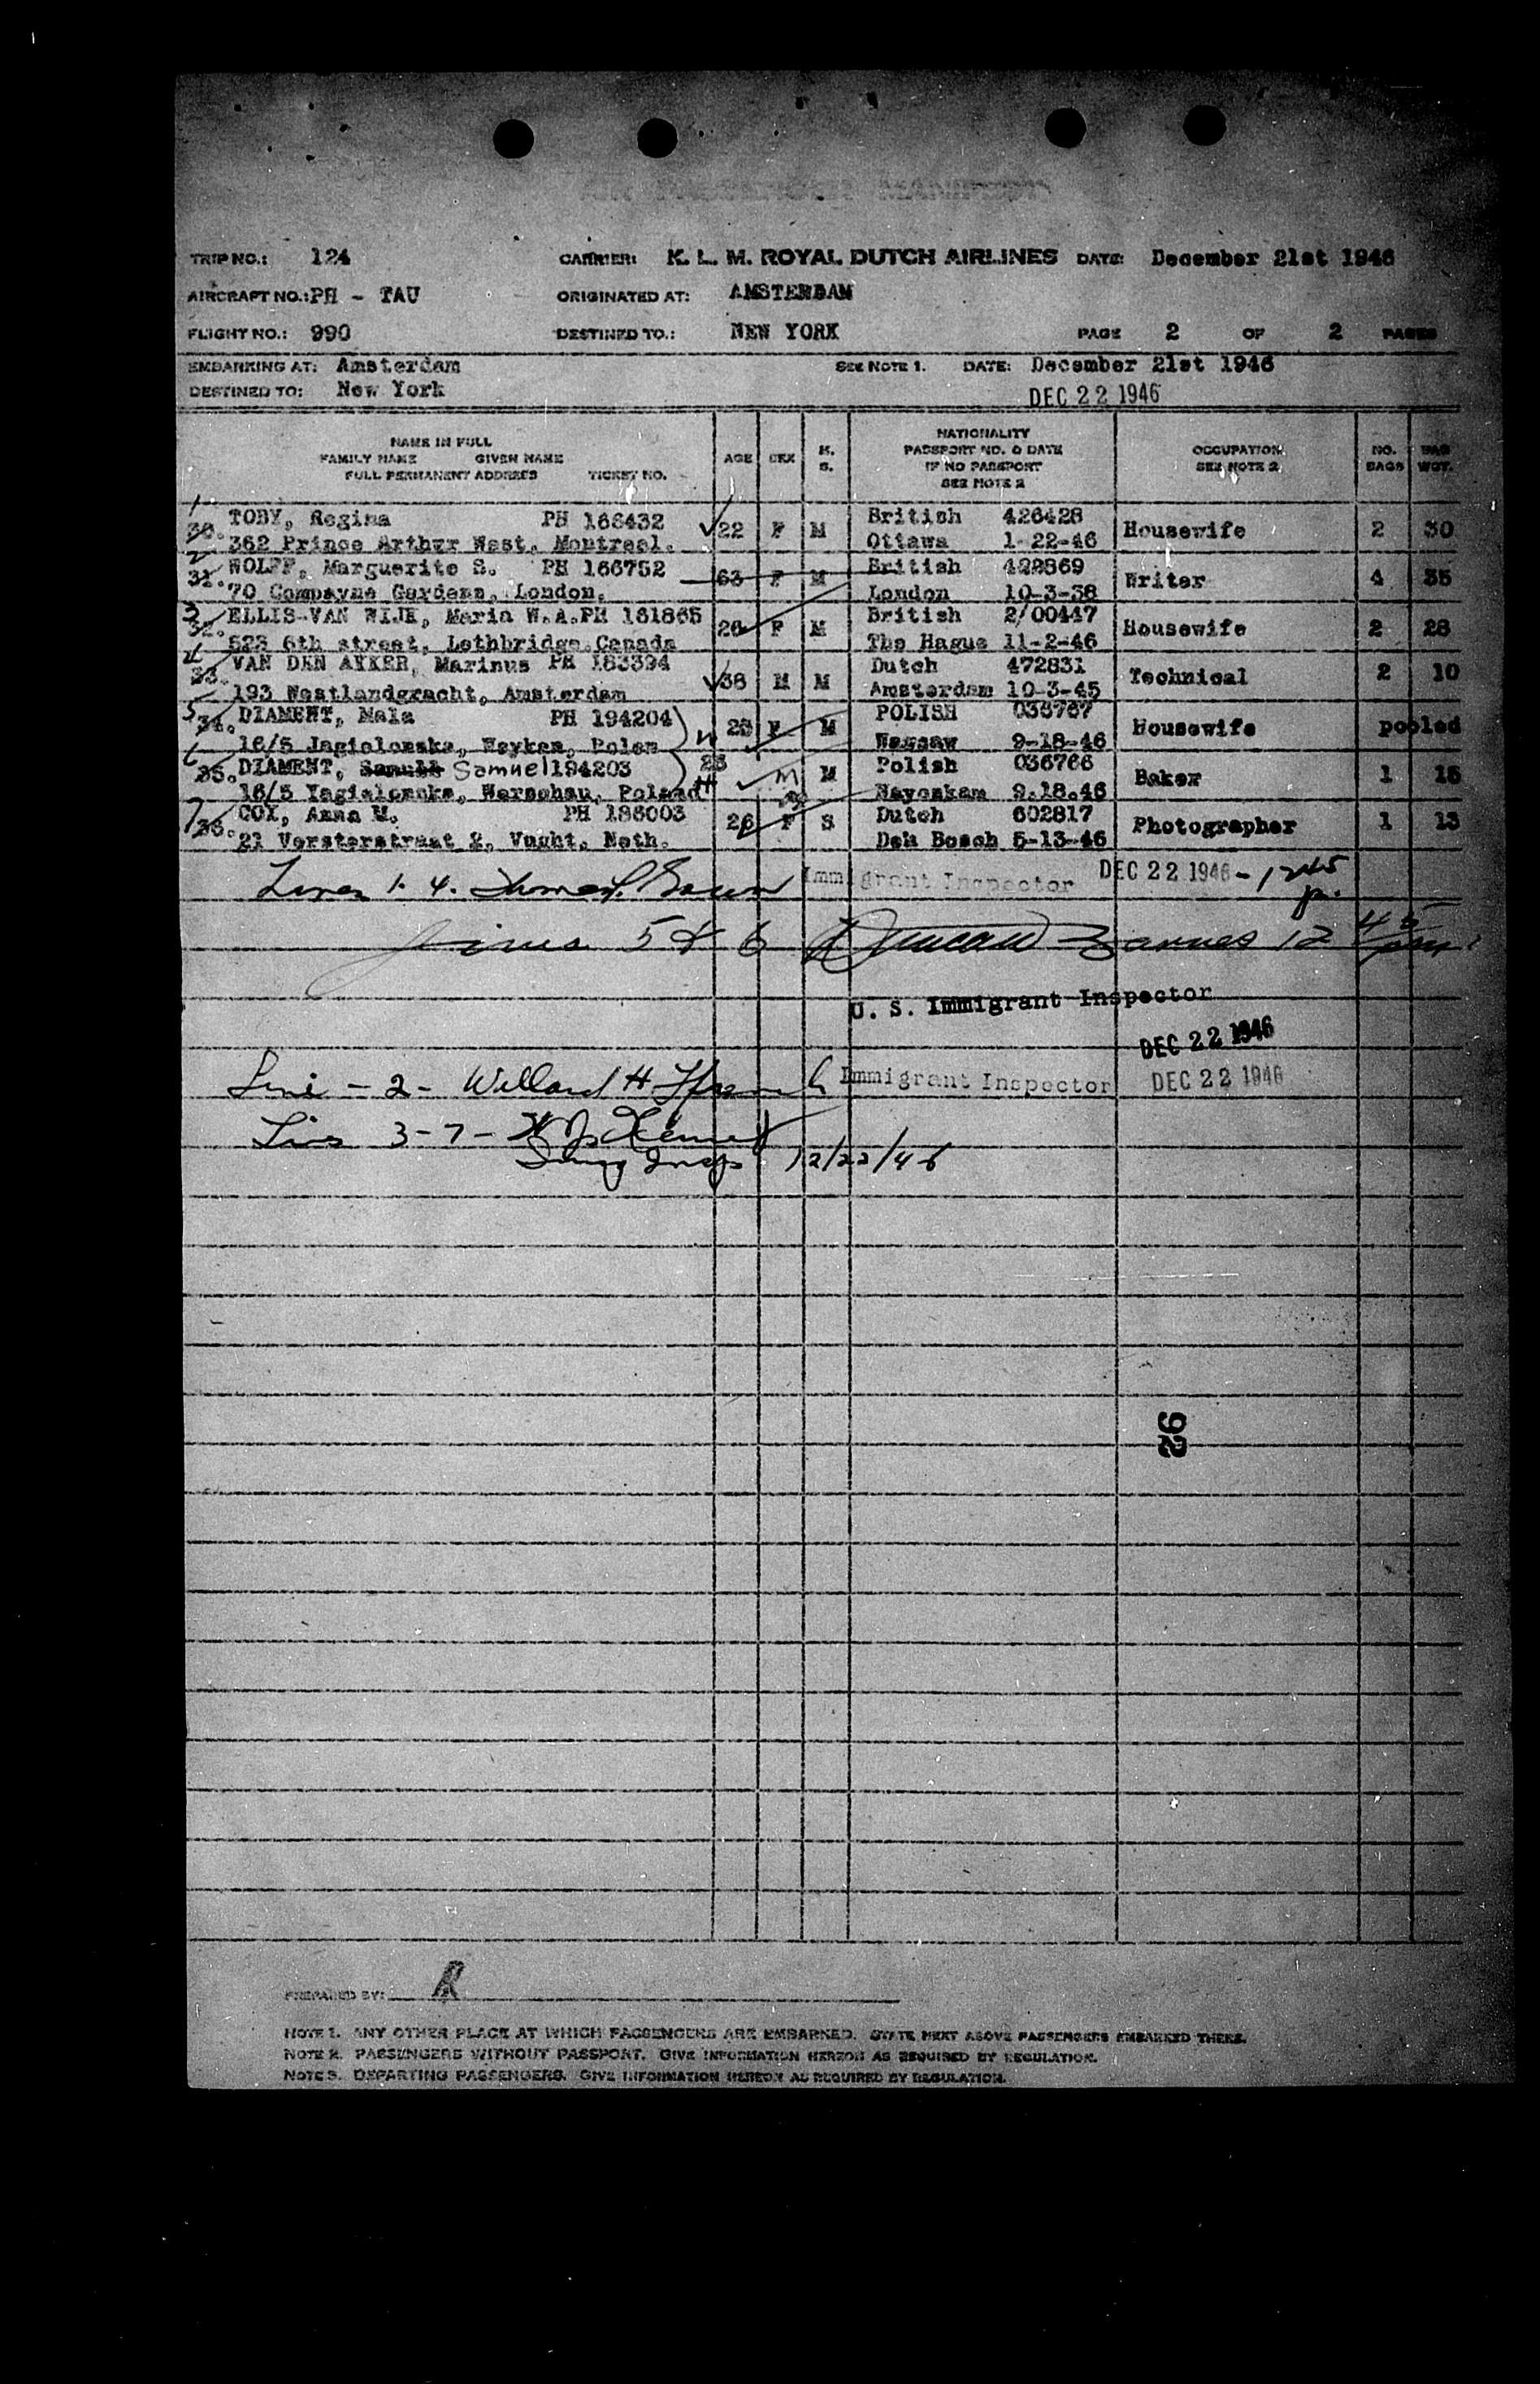 TRIP NO.: 124 CARRIER: K. L. M. ROYAL DUTCH AIRLINES DATE: December 21st 1946
AIRCRAFT NO.: PH - TAU ORIGINATED AT: AMSTERDAM
FLIGHT NO.: 990 DESTINED TO.: NEW YORK PAGE 2 OF 2 PAGES
EMBARKING AT: Amsterdam SEE NOTE 1. DATE: December 21st 1946
DESTINED TO: New York DEC 22 1946
NAME IN FULL
FAMILY NAME GIVEN NAME
FULL PERMANENT ADDRESS TICKET NO.
AGE SEX M. S.
NATIONALITY
PASSPORT NO. & DATE
IF NO PASSPORT
SEE NOTE 2
OCCUPATION
SEE NOTE 2
NO. BAGS BAG WGT.
1 30. TOBY, Regina PH 166432 22 F M British 426428 Housewife 2 30
362 Prince Arthur West, Montreal. Ottawa 1-22-46
2 31. WOLFF, Marguerite S. PH 166752 63 F M British 492869 Writer 4 35
70 Compayne Gardens, London. London 10-3-38
3 32. ELLIS-VAN WIJK, Maria W.A. PH 161865 26 F M British 2/00447 Housewife 2 28
523 6th street, Lethbridge Canada The Hague 11-2-46
4 33. VAN DEN AKKER, Marinus PH 183394 38 M M Dutch 472831 Technical 2 10
193 Westlandgracht, Amsterdam Amsterdam 10-3-45
5 34. DIAMENT, Mala PH 194204 W 25 F M POLISH 036767 Housewife pooled
16/5 Jagielonska, Polen 9-18-46
6 35. DIAMENT, Samuel 194203 H M M Polish 036766 Baker 1 15
16/5 Yagielonska, Warschau, Poland 9.18.46
7 36. COX, Anna M. PH 186003 26 F S Dutch 602817 Photographer 1 13
21 Versterstraat 2, Vught, Neth. Den Bosch 5-13-46
Lines 1. 4. Immigrant Inspector DEC 22 1946 - 1245 pm.
Lines 5 & 6 Duncan Barnes 12 45 pm
U. S. Immigrant Inspector
DEC 22 1946
Line - 2 - Willard H Immigrant Inspector DEC 22 1946
Lines 3-7-
Immig Insp 12/22/46
92
PREPARED BY: R
NOTE 1. ANY OTHER PLACE AT WHICH PASSENGERS ARE EMBARKED. STATE NEXT ABOVE PASSENGERS EMBARKED THERE.
NOTE 2. PASSENGERS WITHOUT PASSPORT. GIVE INFORMATION HEREON AS REQUIRED BY REGULATION.
NOTE 3. DEPARTING PASSENGERS. GIVE INFORMATION HEREON AS REQUIRED BY REGULATION.